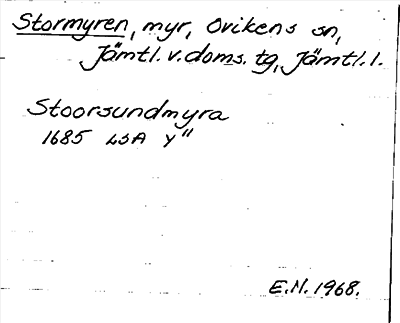 Stormyren, myr, Ovikens sn,
Jämtl. v. doms. tg, Jämtl. l.
Stoorsundmyra
1685 LSA Y"
E.N. 1968.